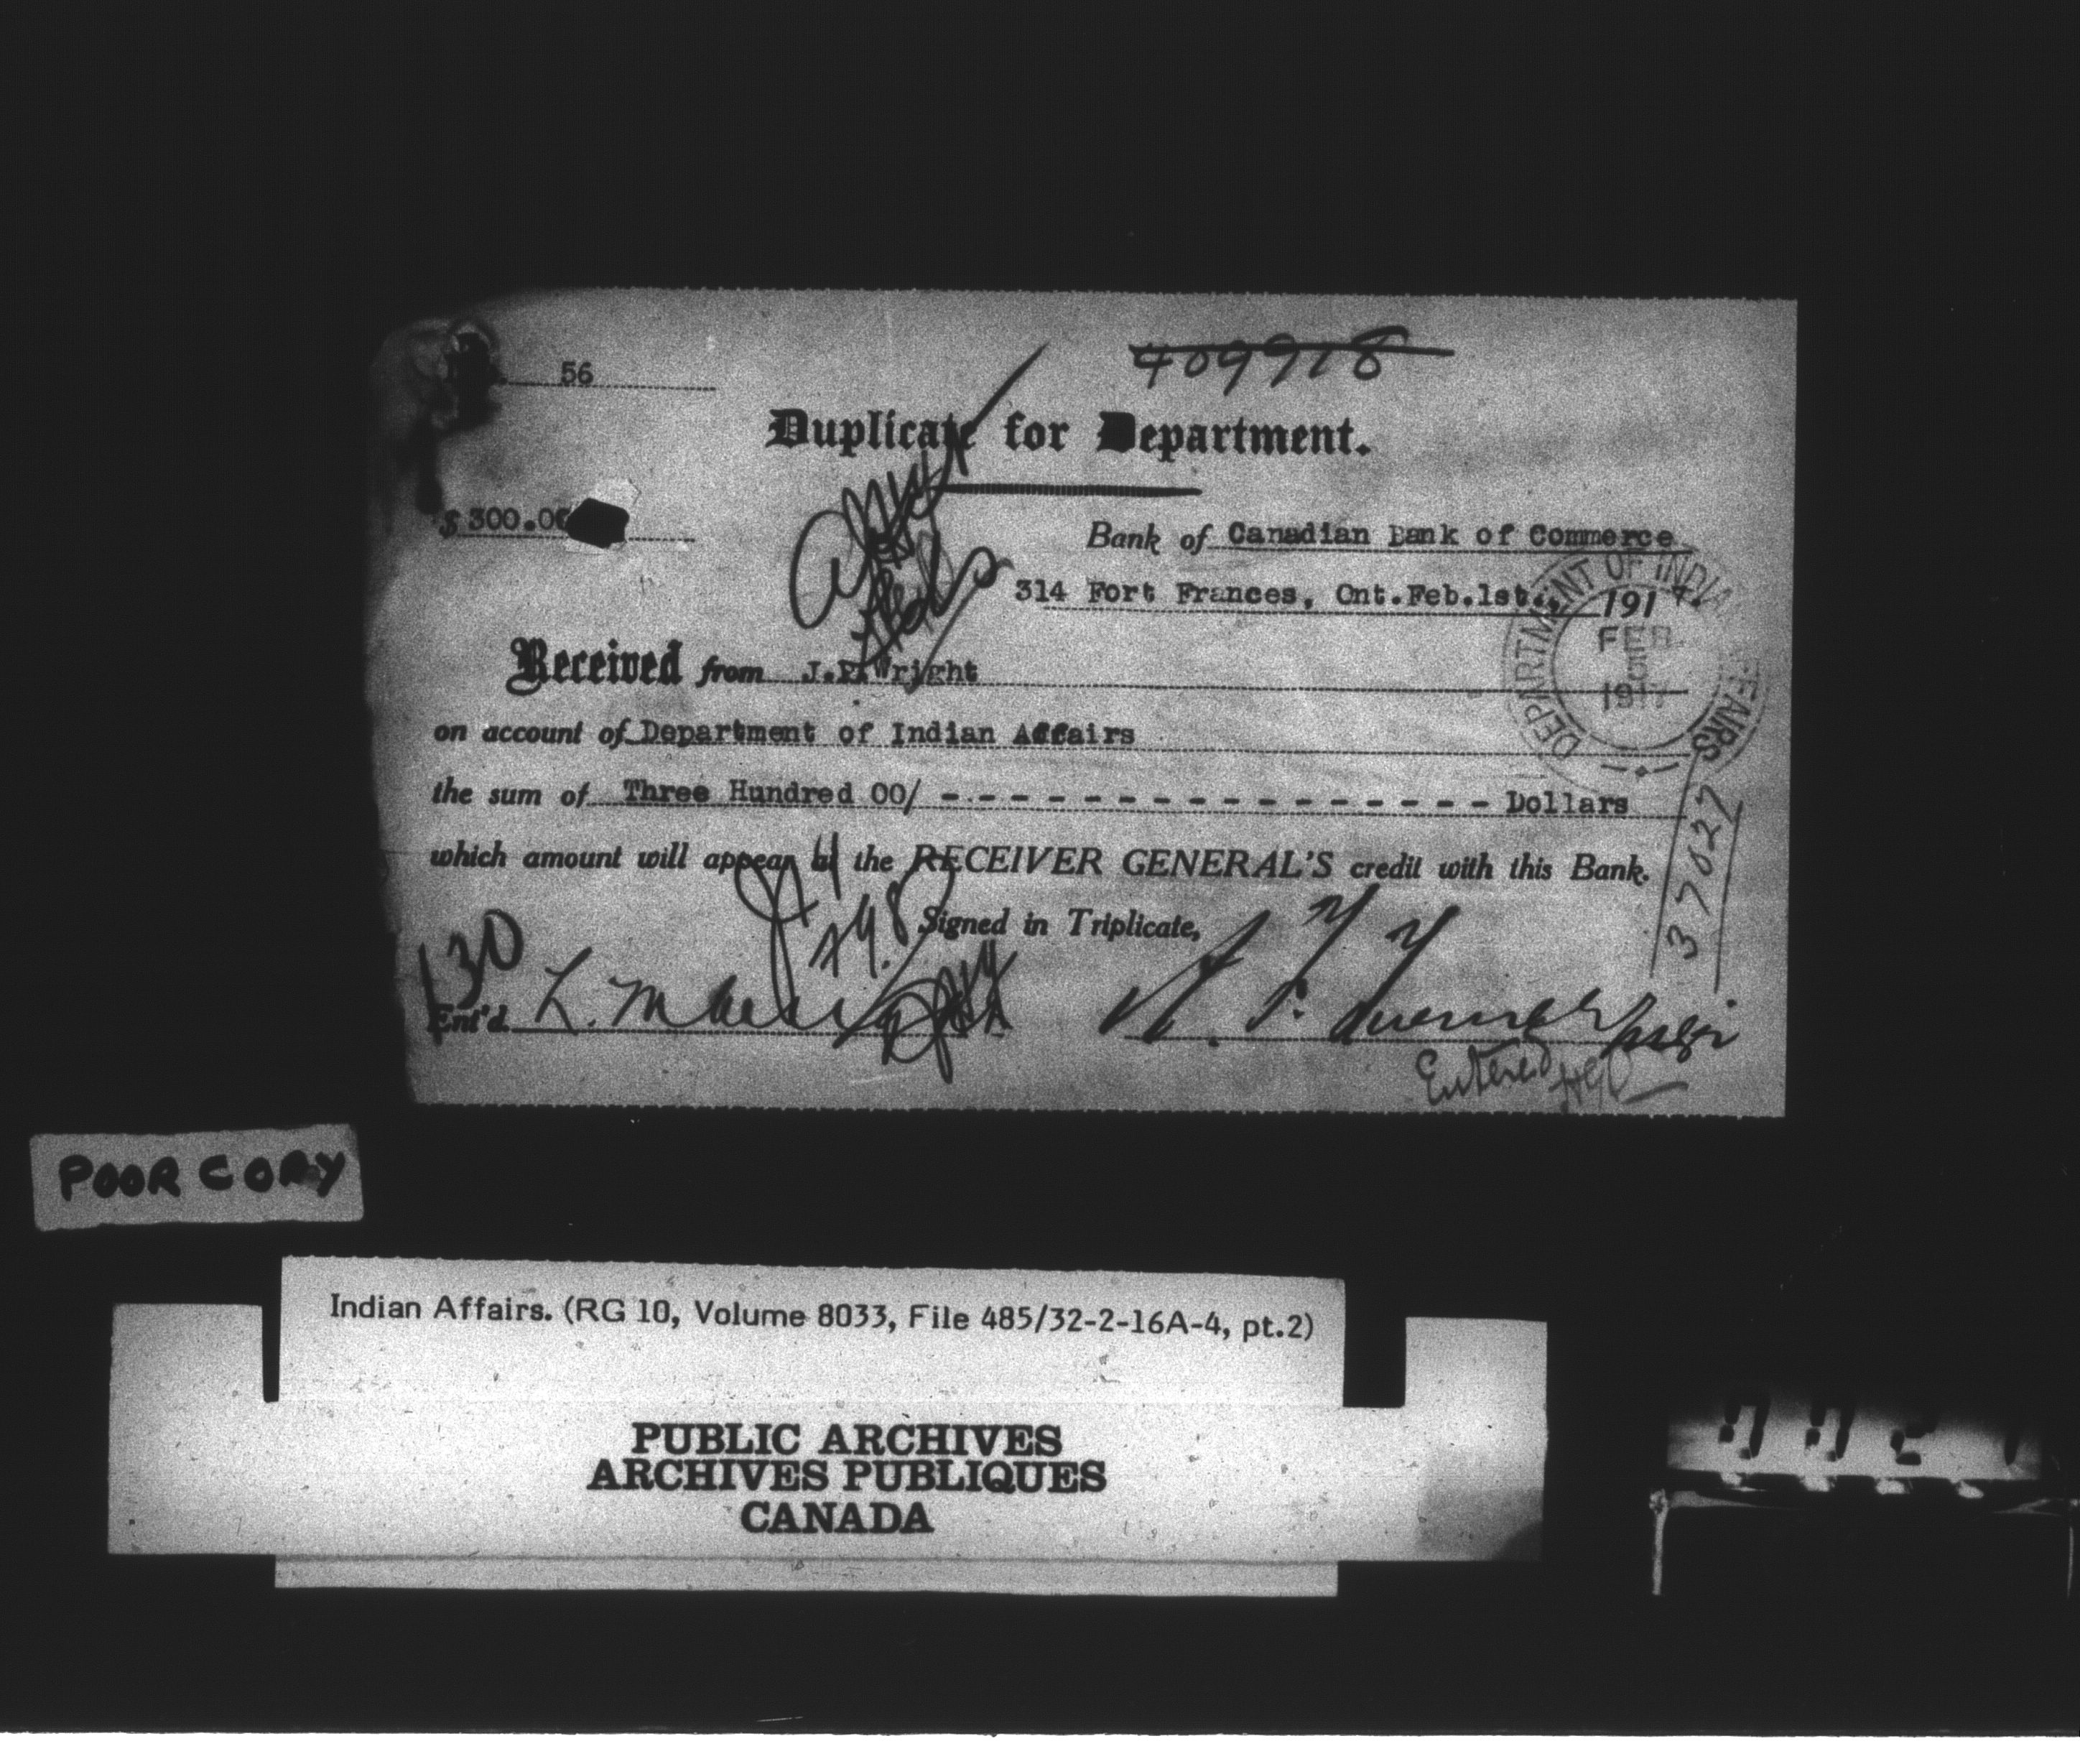 56
409918
Duplicate for Department.
$ 300.00
Bank of Canadian Bank of Commerce
314 Fort Frances, Ont. Feb. 1st., 1917.
DEPARTMENT OF INDIAN AFFAIRS
FEB
1917
Received from J.P. Wright
on account of Department of Indian Affairs
the sum of Three Hundred 00/ - - - - - - - - - - - - - - - - Dollars
which amount will appear at the RECEIVER GENERAL'S credit with this Bank.
37027
Signed in Triplicate,
130
Ent'd L.
Entered
POOR COPY
Indian Affairs. (RG 10, Volume 8033, File 485/32-2-16A-4, pt.2)
PUBLIC ARCHIVES
ARCHIVES PUBLIQUES
CANADA